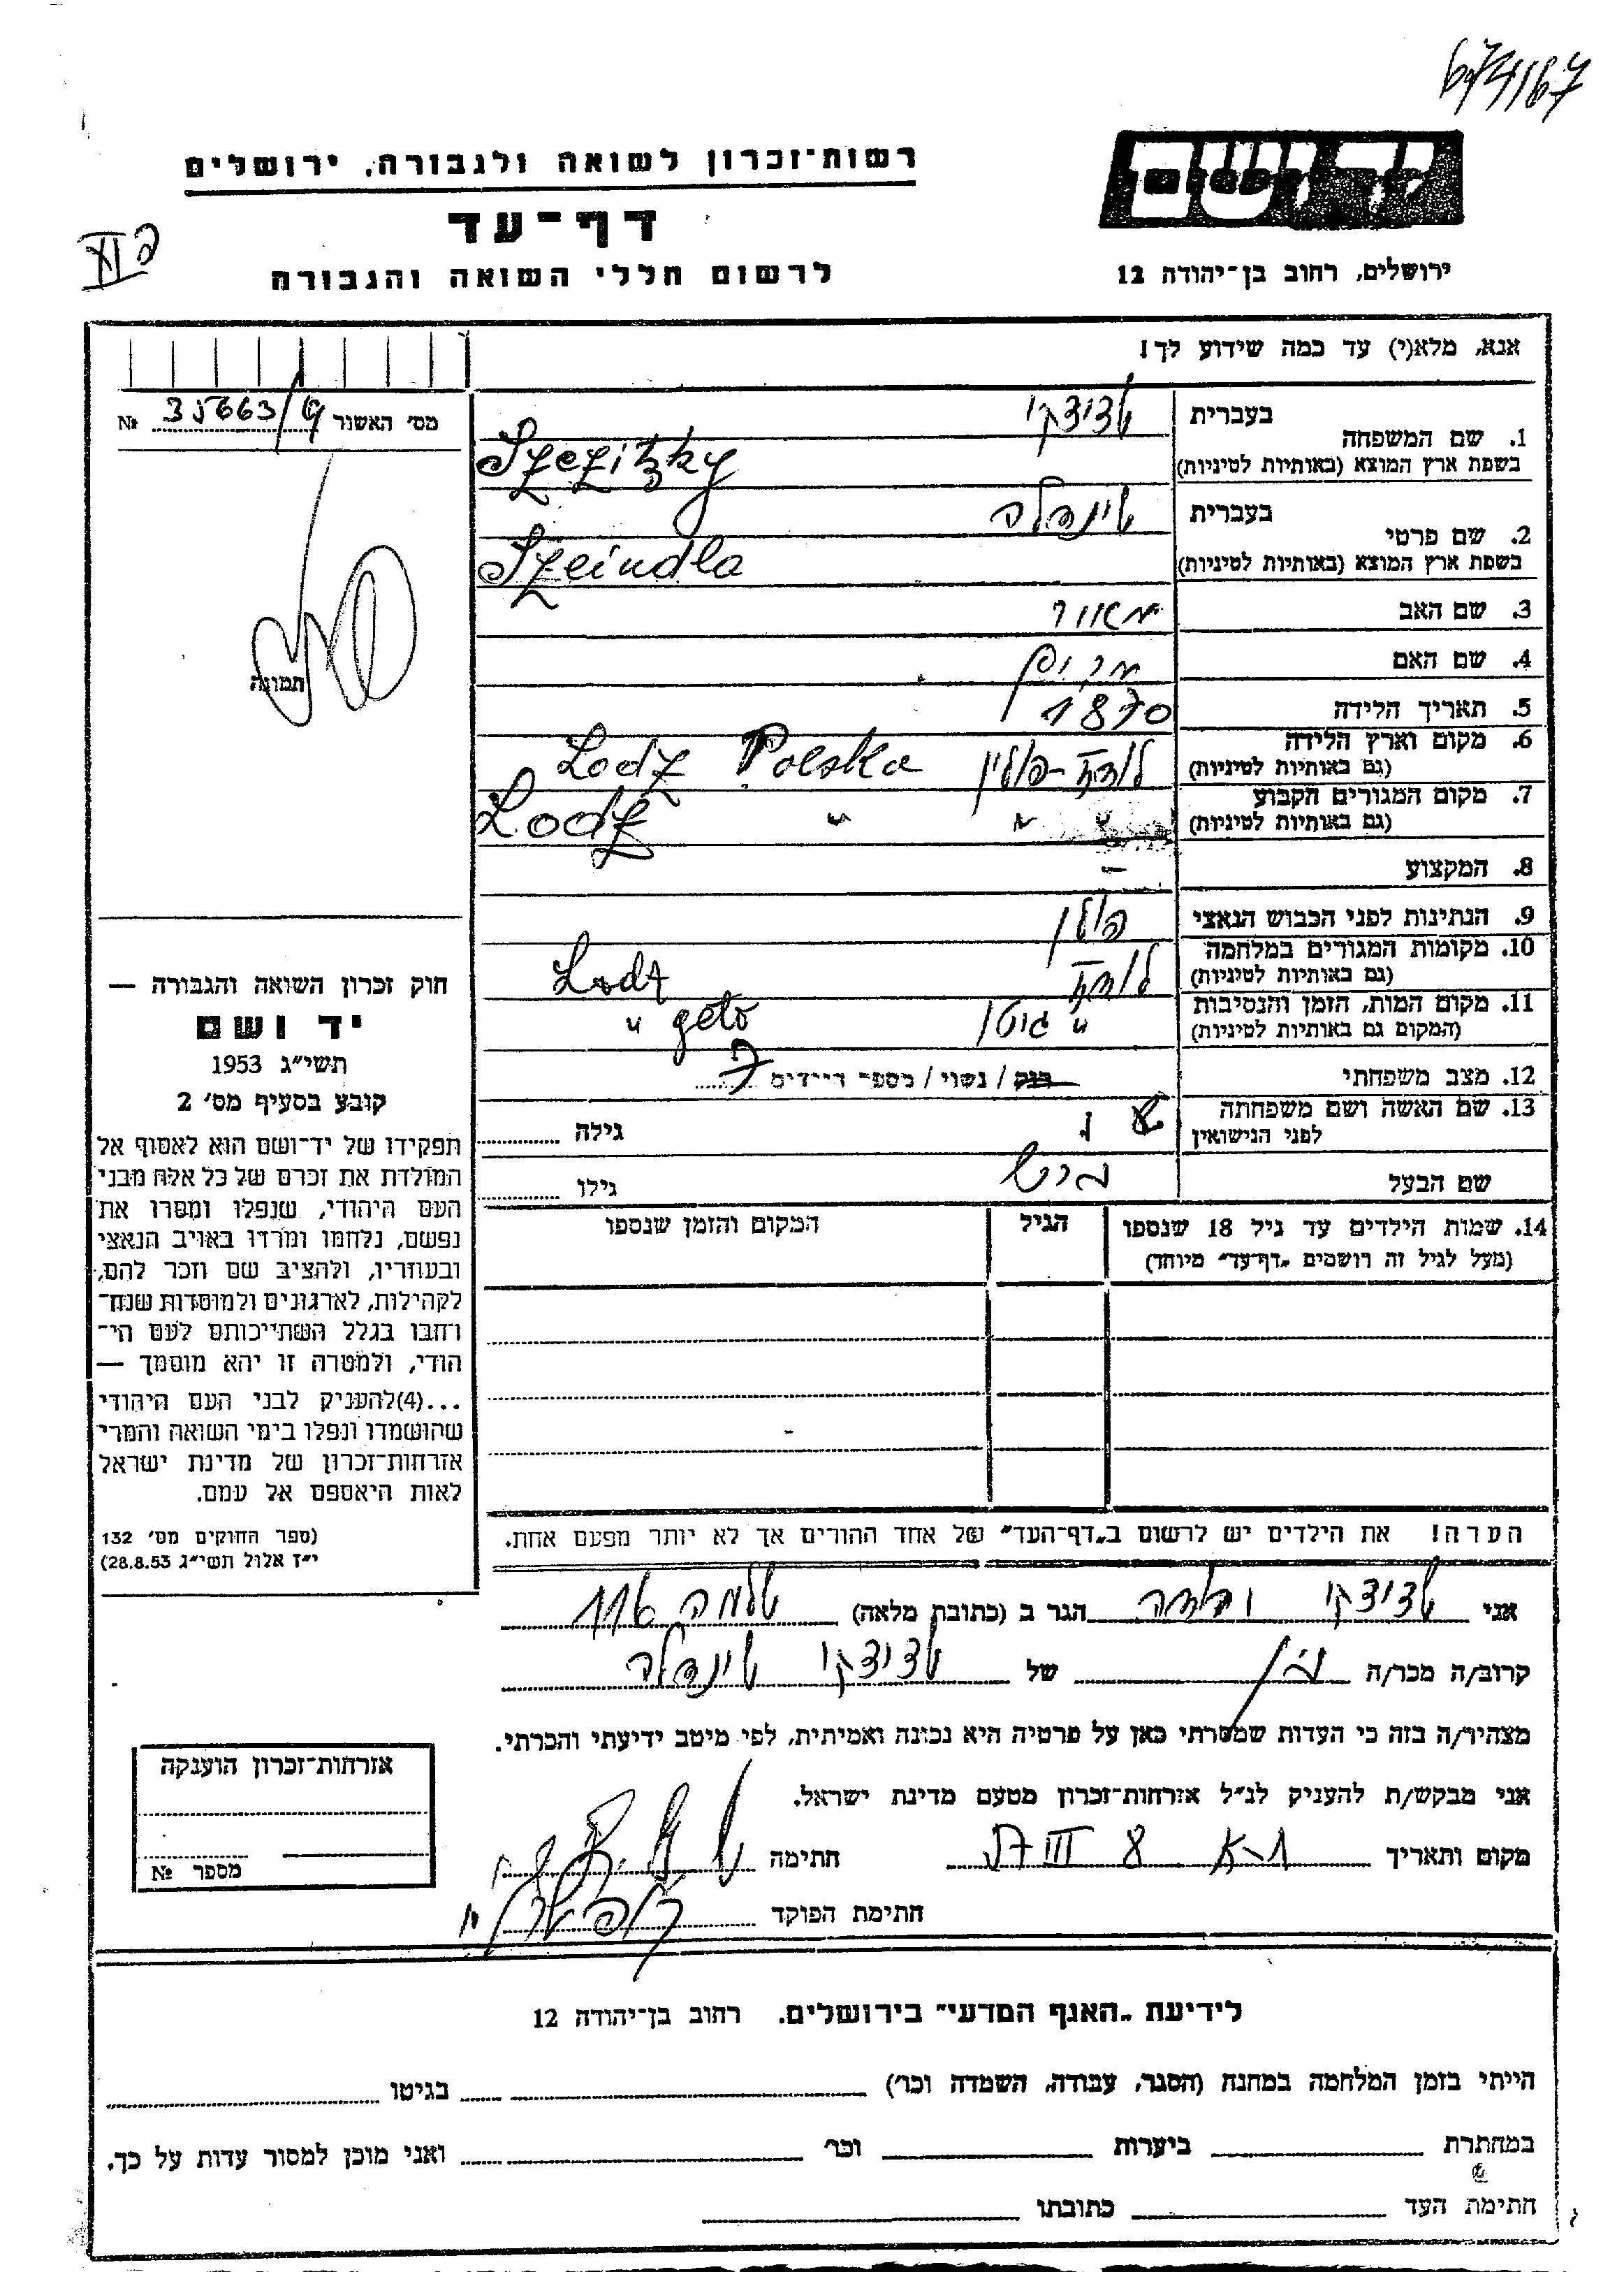 674/67
רשות־זכרון לשואה ולגבורה, ירושלים
יד ושם
דף־עד
לרשום חללי השואה והגבורה
ירושלים, רחוב בן־יהודה 12
אנא, מלא(י) עד כמה שידוע לך!
מס׳ האשור № 35663/
1. שם המשפחה
בעברית
בשפת ארץ המוצא (באותיות לטיניות)
Szezitzky
2. שם פרטי
בעברית שינדלה
בשפת ארץ המוצא (באותיות לטיניות)
Szeindla
3. שם האב מאור
4. שם האם מרים
5. תאריך הלידה 1870
6. מקום וארץ הלידה לודז׳ - פולין Lodz Polska
(גם באותיות לטיניות)
7. מקום המגורים הקבוע " " " Lodz
(גם באותיות לטיניות)
8. המקצוע —
9. הנתינות לפני הכבוש הנאצי פולין
10. מקומות המגורים במלחמה לודז׳ Lodz
(גם באותיות לטיניות)
11. מקום המות, הזמן והנסיבות " גיטו " geto
(המקום גם באותיות לטיניות)
12. מצב משפחתי רוק / נשוי / מספר הילדים 7
13. שם האשה ושם משפחתה
לפני הנישואין
גילה
שם הבעל
גילו
14. שמות הילדים עד גיל 18 שנספו
(מעל לגיל זה רושמים „דף־עד״ מיוחד)
הגיל
המקום והזמן שנספו
תמונה
חוק זכרון השואה והגבורה —
יד ושם
תשי״ג 1953
קובע בסעיף מס׳ 2
תפקידו של יד־ושם הוא לאסוף אל
המולדת את זכרם של כל אלה מבני
העם היהודי, שנפלו ומסרו את
נפשם, נלחמו ומרדו באויב הנאצי
ובעוזריו, ולהציב שם וזכר להם,
לקהילות, לארגונים ולמוסדות שנח־
רבו בגלל השתייכותם לעם הי־
הודי, ולמטרה זו יהא מוסמך —
...(4)להעניק לבני העם היהודי
שהושמדו ונפלו בימי השואה והמרי
אזרחות־זכרון של מדינת ישראל
לאות היאספם אל עמם.
(ספר החוקים מס׳ 132
י״ז אלול תשי״ג 28.8.53)
הערה! את הילדים יש לרשום ב„דף־העד״ של אחד ההורים אך לא יותר מפעם אחת.
אני הגר ב (כתובת מלאה)
קרוב/ה מכר/ה בן של שינדלה
מצהיר/ה בזה כי העדות שמסרתי כאן על פרטיה היא נכונה ואמיתית, לפי מיטב ידיעתי והכרתי.
אני מבקש/ת להעניק לנ״ל אזרחות־זכרון מטעם מדינת ישראל.
מקום ותאריך ת-א 8 III חתימה
חתימת הפוקד
אזרחות־זכרון הוענקה
מספר №
לידיעת „האגף המדעי״ בירושלים. רחוב בן־יהודה 12
הייתי בזמן המלחמה במחנה (הסגר, עבודה, השמדה וכר׳) בגיטו
במחתרת ביערות וכר׳ ואני מוכן למסור עדות על כך.
חתימת העד כתובתו